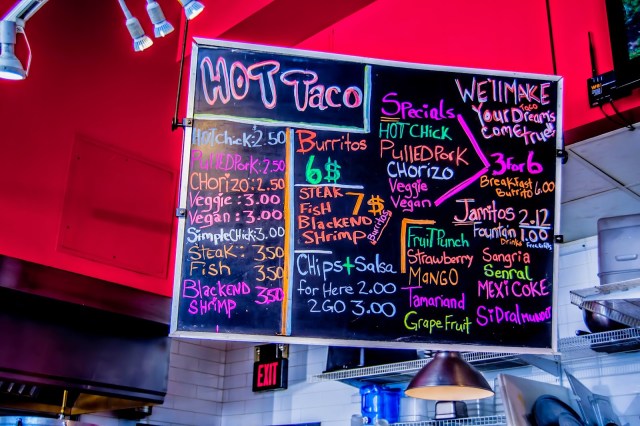 HOT Taco
HOTChick: 2.50
PulledPork: 2.50
CHORIZO: 2.50
Veggie: 3.00
Vegan: 3.00
SimpleChick: 3.00
STEAK: 350
FISH 350
BLACKEND
SHRIMP 350
Burritos
6$
STEAK
FISH
BLACKEND
SHRIMP
7$
Burritos
CHIPS + Salsa
for Here 2.00
2GO 3.00
Specials
HOT CHICK
PULLEDPORK
CHORIZO
Veggie
Vegan
3 FOR 6
WE'll MAKE
Your TACO Dreams
come true!
Breakfast
Burrito 6.00
Jarritos 2.12
Fountain 1.00
Drinks
Fruit Punch
Strawberry
MANGO
Tamariand
GrapeFruit
Sangria
Senral
MEXI COKE
SiDral mundet
EXIT